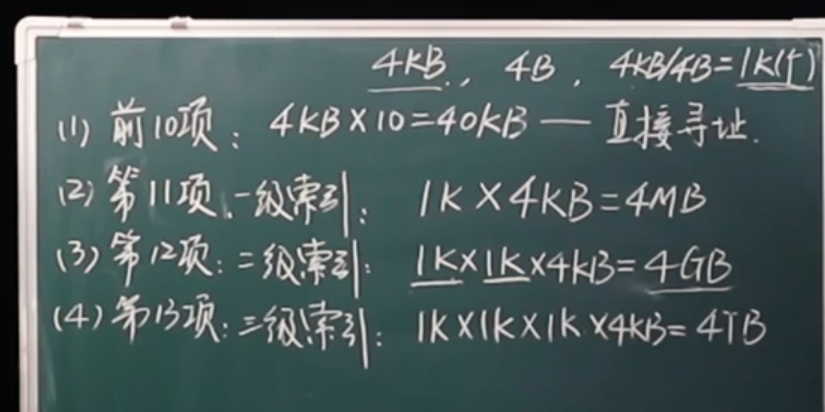 4KB., 4B, 4KB/4B=1K(个)
(1) 前10项: 4KB×10=40KB — 直接寻址.
(2) 第11项.一级索引: 1K×4KB=4MB
(3) 第12项:二级索引: 1K×1K×4KB=4GB
(4) 第13项:三级索引: 1K×1K×1K×4KB=4TB